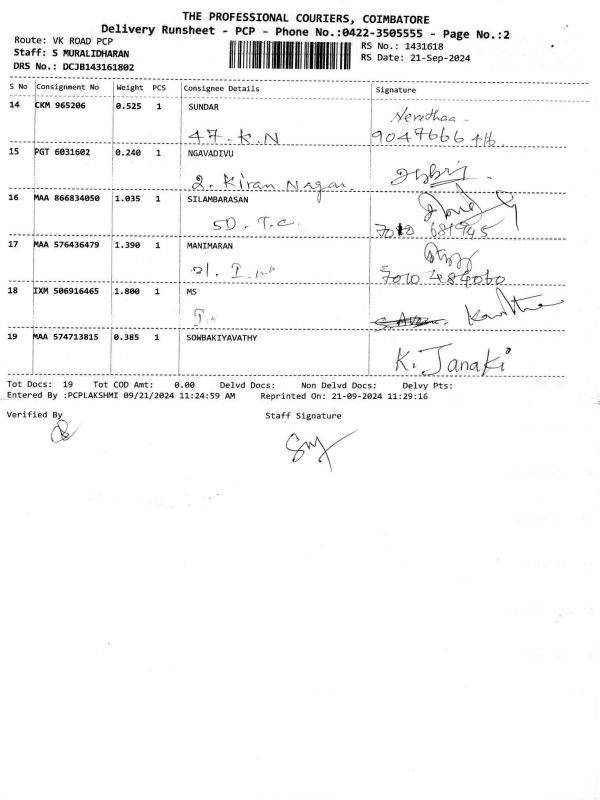 THE PROFESSIONAL COURIERS, COIMBATORE
Delivery Runsheet - PCP - Phone No.:0422-3505555 - Page No.:2
Route: VK ROAD PCP
RS No.: 1431618
Staff: S MURALIDHARAN
RS Date: 21-Sep-2024
DRS No.: DCJB143161802
S No Consignment No Weight PCS Consignee Details Signature
14 CKM 965206 0.525 1 SUNDAR
47. K.N 9047666 416
15 PGT 6031602 0.240 1 NGAVADIVU
2. Kiran Nagar.
16 MAA 866834050 1.035 1 SILAMBARASAN
5D. T.C. 7010 681945
17 MAA 576436479 1.390 1 MANIMARAN
7010 484060
18 IXM 506916465 1.800 1 MS
19 MAA 574713815 0.385 1 SOWBAKIYAVATHY
K. Janaki
Tot Docs: 19 Tot COD Amt: 0.00 Delvd Docs: Non Delvd Docs: Delvy Pts:
Entered By :PCPLAKSHMI 09/21/2024 11:24:59 AM Reprinted On: 21-09-2024 11:29:16
Verified By Staff Signature